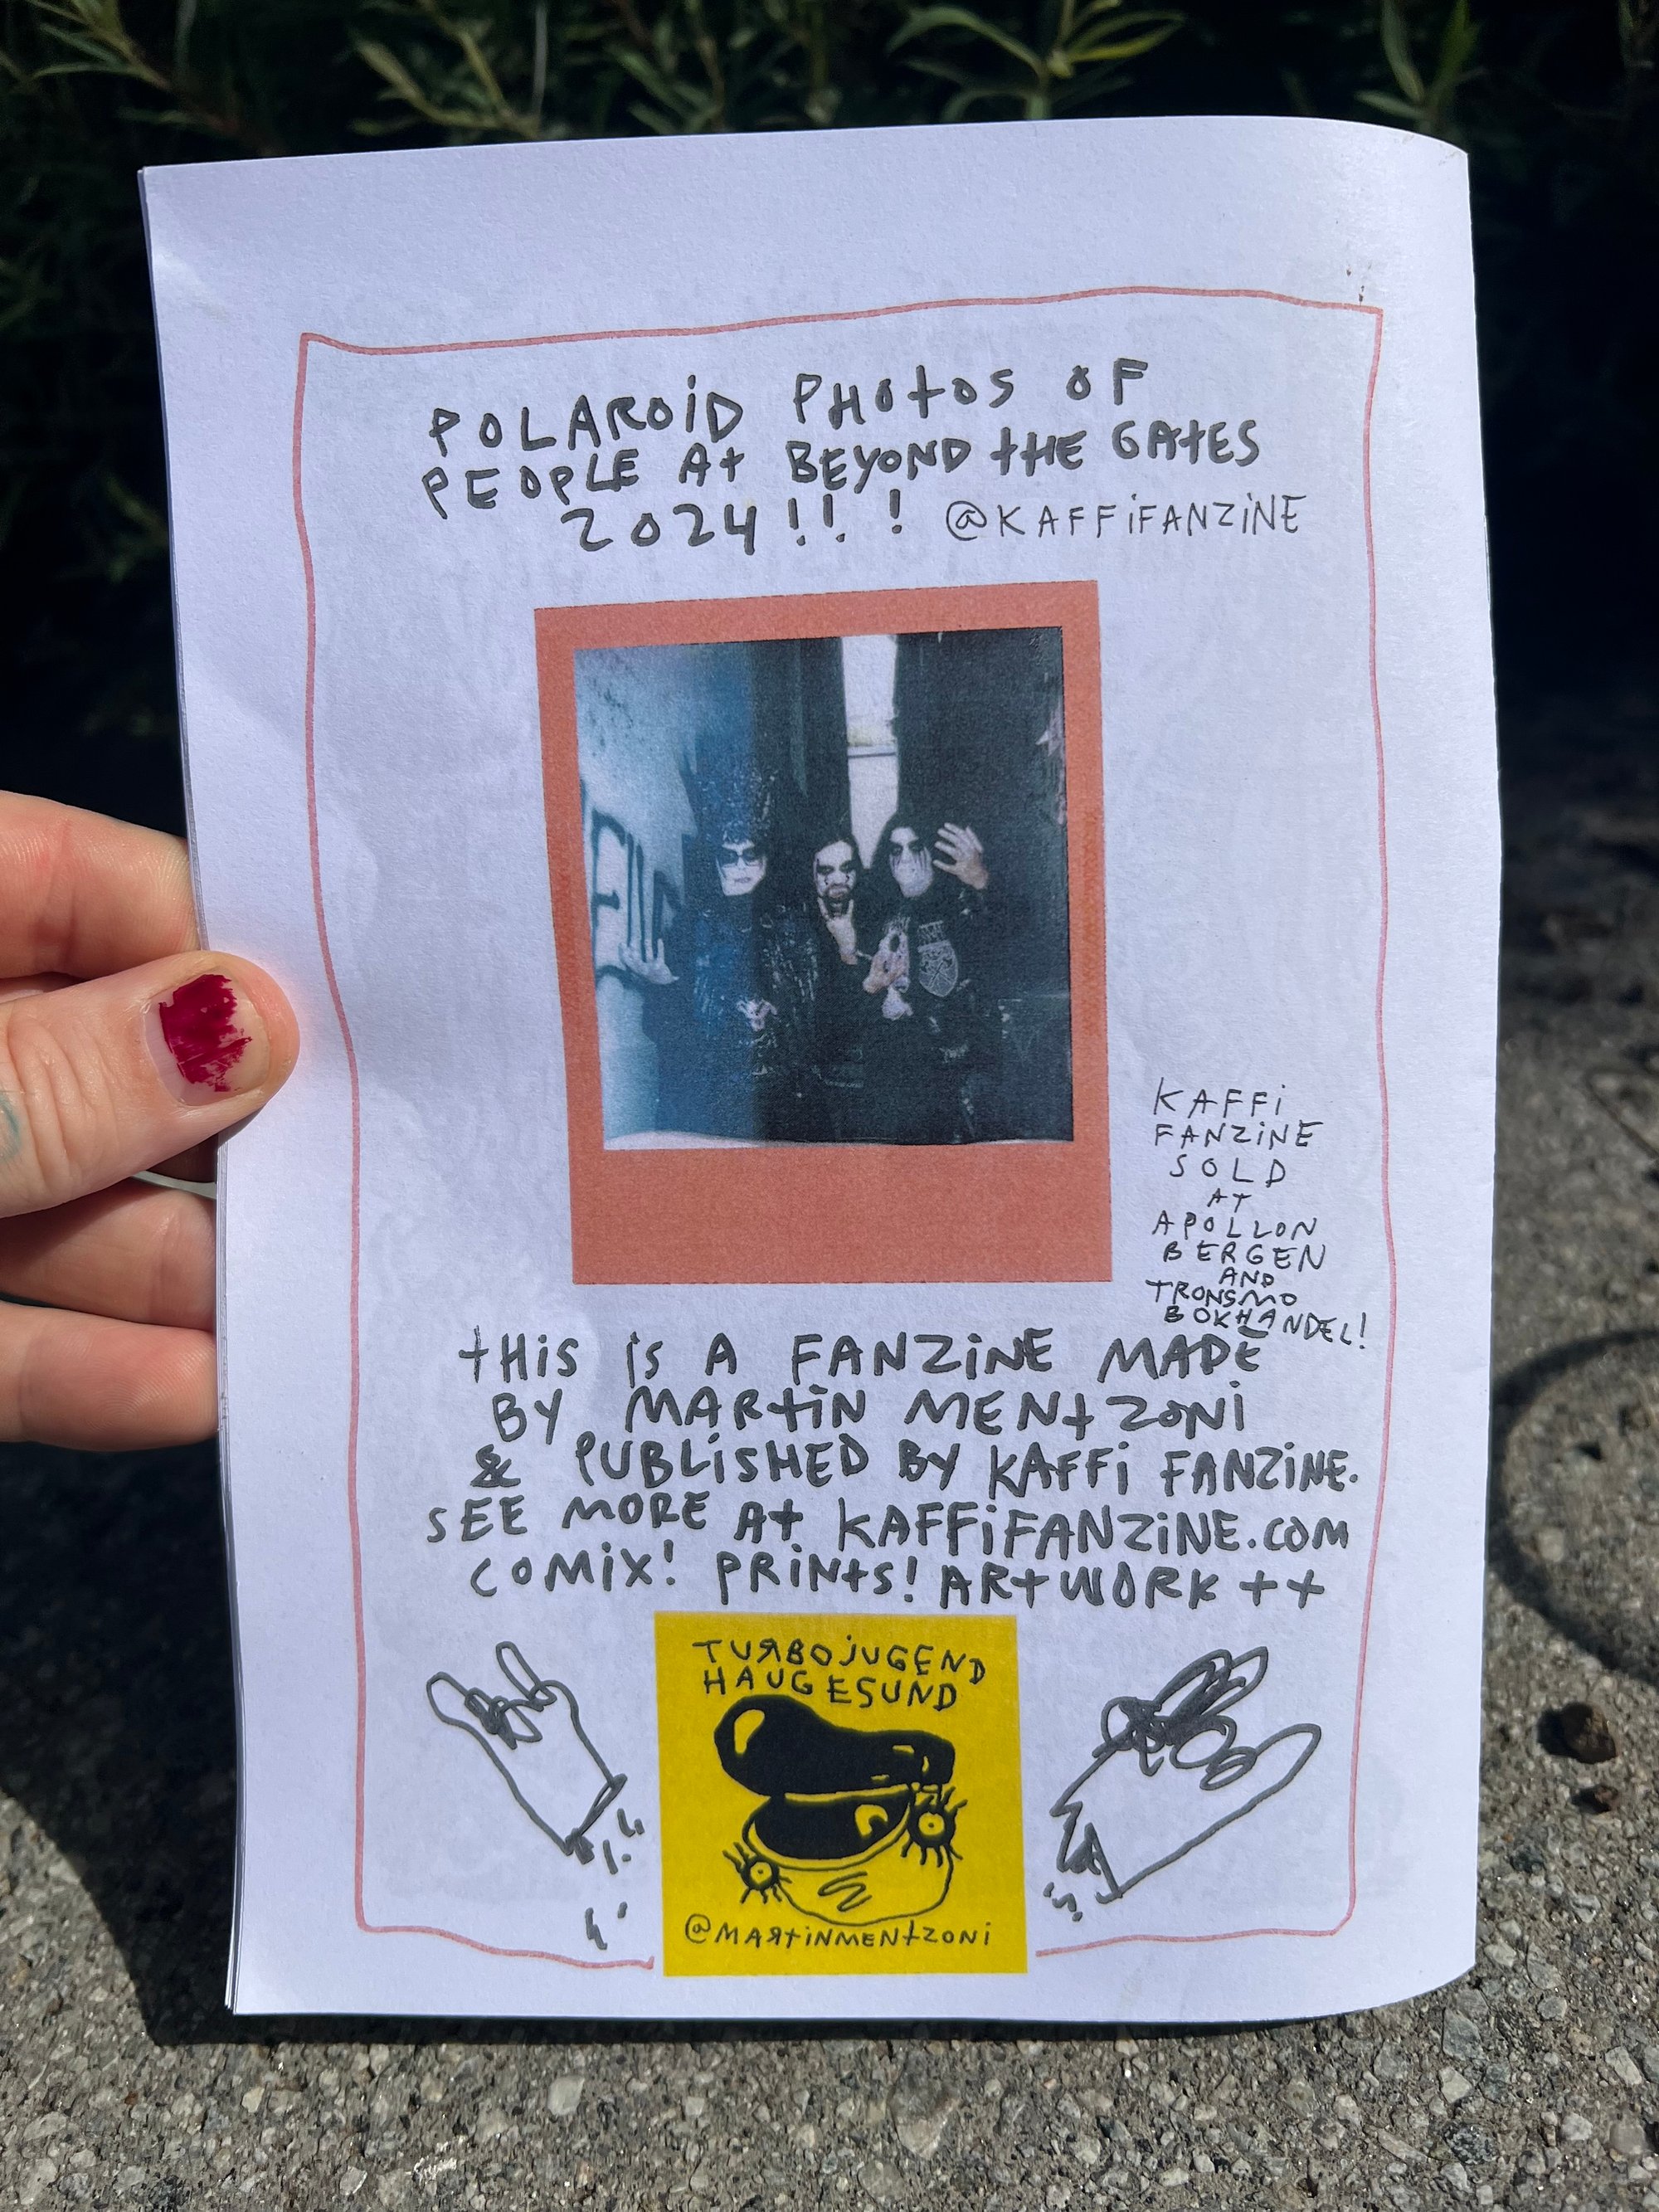 POLAROiD PHOtOS OF
PEOPLE At BEYOND tHE GAtES
2024!! ! @KAFFiFANZiNE
KAFFi
FANZiNE
SOLD
AT
APOLLON
BERGEN
AND
TRONSMO
BOKHANDEL!
tHiS iS A FANZiNE MADE
BY MARtiN MENtZONi
& PUBLiSHED BY KAFFi FANZiNE.
SEE MORE At KAFFiFANZiNE.COM
COMiX! PRiNtS! ARtWORK ++
TURBOjUGEND
HAUGESUND
@MARtiNMENtZONi